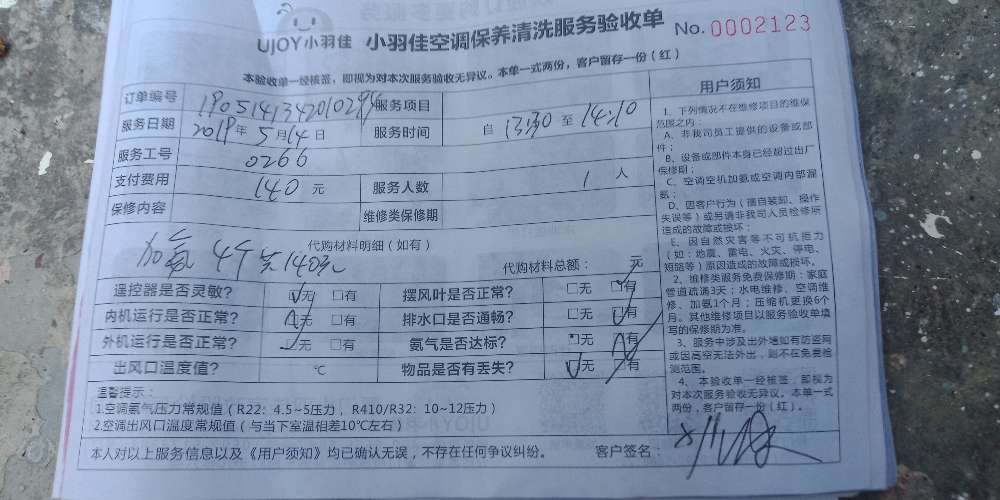 UJOY小羽佳 小羽佳空调保养清洗服务验收单 No. 0002123
本验收单一经核签，即视为对本次服务验收无异议。本单一式两份，客户留存一份（红）
订单编号 服务项目
服务日期 2019年 5月14日 服务时间 自 13:30 至 14:10
服务工号 0266
支付费用 140 元 服务人数 1 人
保修内容 维修类保修期
代购材料明细（如有）
代购材料总额： 元
遥控器是否灵敏？ □无 □有 摆风叶是否正常？ □无 □有
内机运行是否正常？ □无 □有 排水口是否通畅？ □无 □有
外机运行是否正常？ □无 □有 氨气是否达标？ □无 □有
出风口温度值？ ℃ 物品是否有丢失？ □无 □有
温馨提示：
1.空调氨气压力常规值（R22：4.5~5压力，R410/R32：10~12压力）
2.空调出风口温度常规值（与当下室温相差10℃左右）
本人对以上服务信息以及《用户须知》均已确认无误，不存在任何争议纠纷。 客户签名：
用户须知
1、下列情况不在维修项目的维保
范围之内：
A、非我司员工提供的设备或部
件；
B、设备或部件本身已经超过出厂
保修期；
C、空调空机加氨或空调内部漏
氨；
D、因客户行为（擅自装卸、操作
失误等）或另请非我司人员检修所
造成的故障或损坏；
E、因自然灾害等不可抗拒力
（如：地震、雷电、火灾、停电、
短路等）原因造成的故障或损坏。
2、维修类服务免费保修期：家庭
管道疏通3天；水电维修、空调维
修、加氨1个月；压缩机更换6个
月。其他维修项目以服务验收单填
写的保修期为准。
3、服务中涉及出外墙如有防盗网
或因高空无法外出，则不在免费检
测范围。
4、本验收单一经核签，即视为
对本次服务验收无异议。本单一式
两份，客户留存一份（红）。